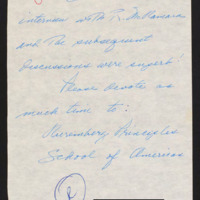 interview with R. McNamara
and the subsequent
discussions were superb.
Please devote as
much time to:
Nuremberg Principles
School of Americas